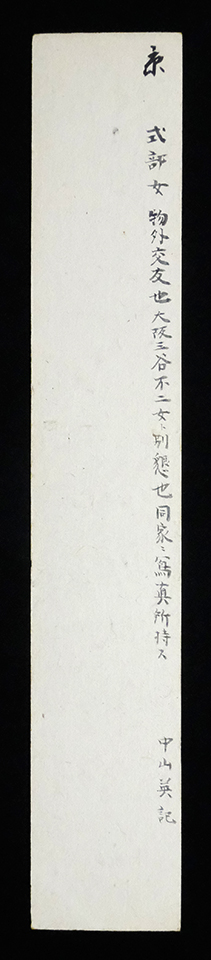 京
式部女 物外交友也大阪三谷不二女ト別懇也同家ニ寫真所持ス
中山英記